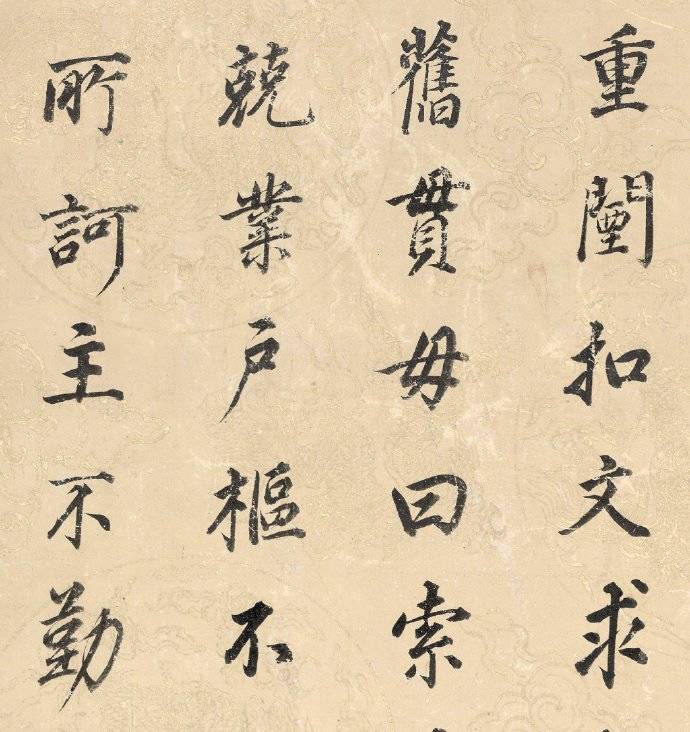 重闉扣文求
舊貫毋曰索
兢業戶樞不
所訶主不勤